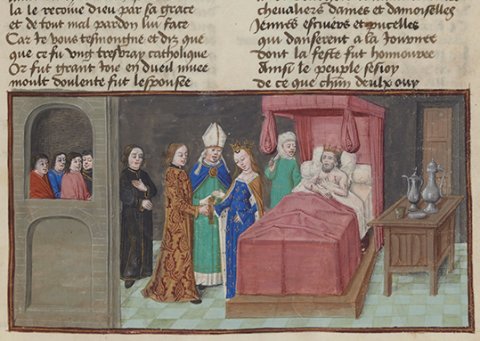 la le recoiue dieu par sa grace
et de tout mal pardon lui face
Car Je vous tesmoigne et diz que
que ce fu ung tresvray catholique
Or fut grant Joie en dueil muee
moult doulente fut lespousee
chevaliers dames et damoiselles
Jennes escuiers et pucelles
qui danserent a la Journee
dont la feste fut honnouree
Ainsi le peuple
de ce que